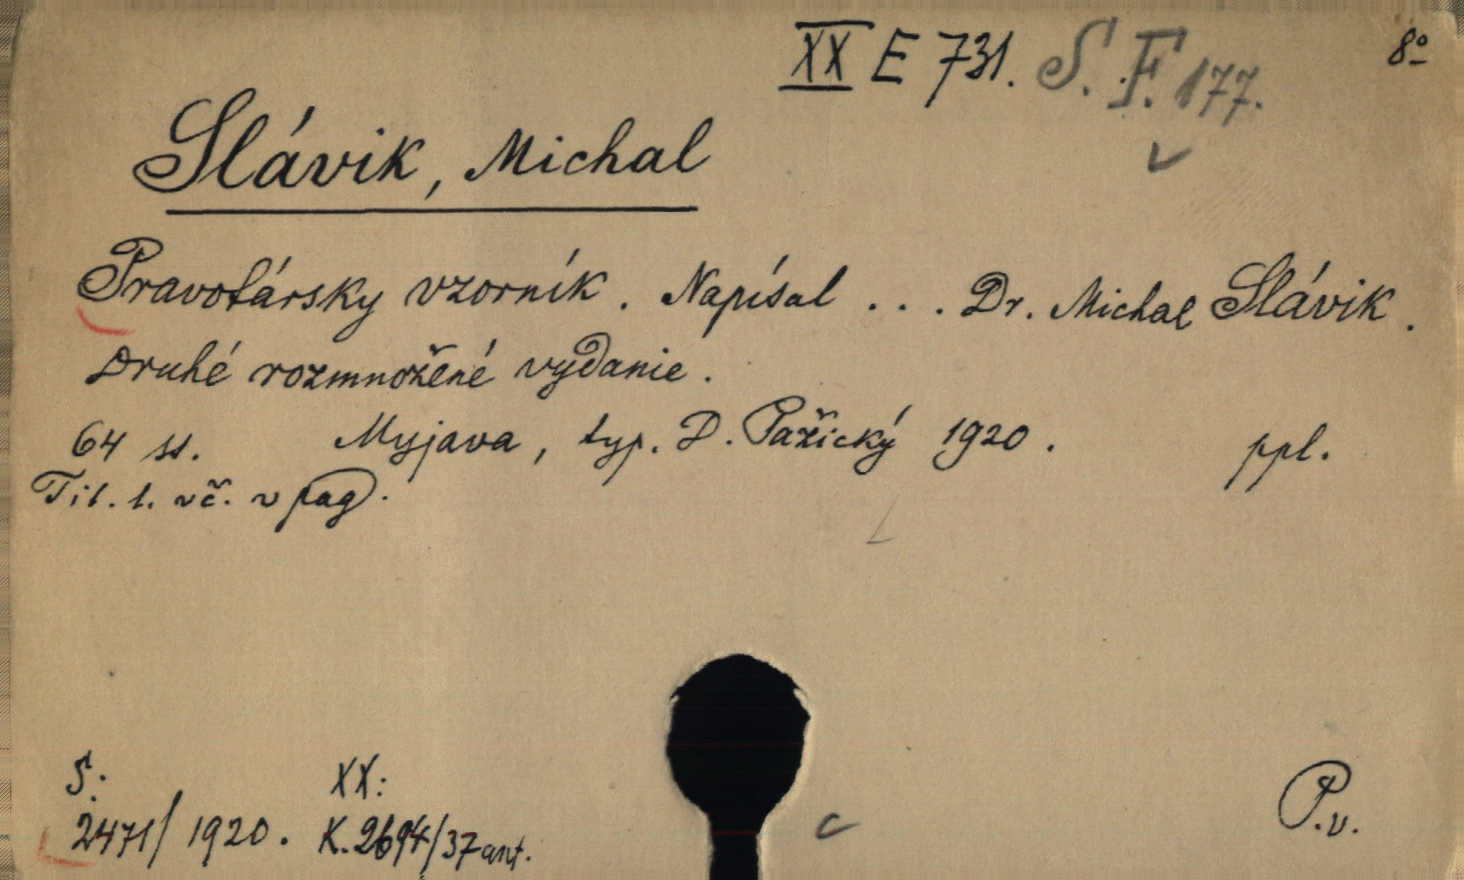 XX E 731. S. F. 177. 8º
Slávik, Michal
Pravotársky vzorník. Napísal ... Dr. Michal Slávik.
Druhé rozmnožené vydanie.
64 ss. Myjava, typ. D. Pažický 1920. ppl.
Tit. l. vč. v pag.
S: XX:
2471/1920. K. 2694/37 ant.
P.v.